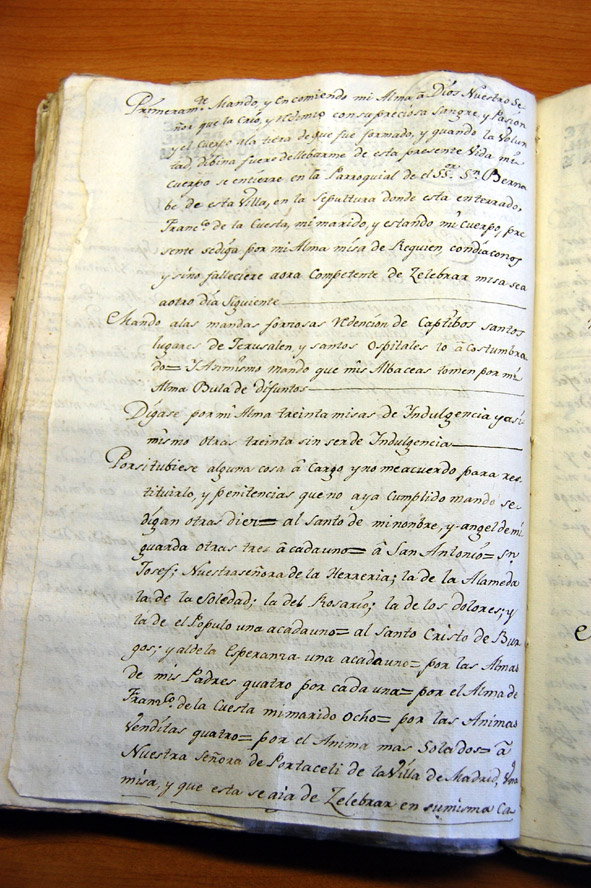 Primeram.te Mando y encomiendo mi Alma â Dios Nuestro Se
ñor que la crio, y redimio consupreciosa sangre, y Pasion
y el cuerpo ala tiera de que fue formado, y quando la Volun
tad, dibina fuere dellebarme de esta presente Vida mi
cuerpo se entierre en la Parroquial de el S.or S.n Berna
be de esta Villa, en la Sepulttura donde esta enterrado,
Franc.co de la Cuesta, mi marido, y estando mi Cuerpo, pre
sente sediga por mi Alma misa de Requien, condiaconos
y sino falleciere aora Competente de Zelebrar misa sea
aotro dia siguiente
Mando alas mandas forzosas redención de Captibos santos
lugares de Jerusalen, y santos Ospitales lo âcostumbra
do= Y Asimismo mando que mis Albaceas tomen por mi
Alma Bula de difuntos
Digase por mi Alma treinta misas de Indulgencia y asi
mismo otras treinta sin ser de Indulgencia
Porsitubiese alguna cosa â Cargo y no meacuerdo para res
tituirlo, y penitencias que no aya Cumplido mando se
digan otras diez= al Santo de minonbre, y angel de mi
guarda otras tres â cadauno= â San Antonio= Sn
Josef; Nuestraseñora de la Herreria; la de la Alameda
la de la Soledad; la del Rosario; la de los dolores; y
la de el Populo una acadauno= al Santo Cristo de Bur
gos; y aldela Esperanza una acadauno= por las Almas
de mis Padres quatro por cada una= por el Alma de
Fran.co de la Cuesta mimarido Ocho= por las Animas
Venditas quatro= por el Anima mas Sola dos= â
Nuestra Señora de Portaceli de la Villa de Madrid, Vna
misa, y que esta se aia de Zelebrar en sumisma Ca